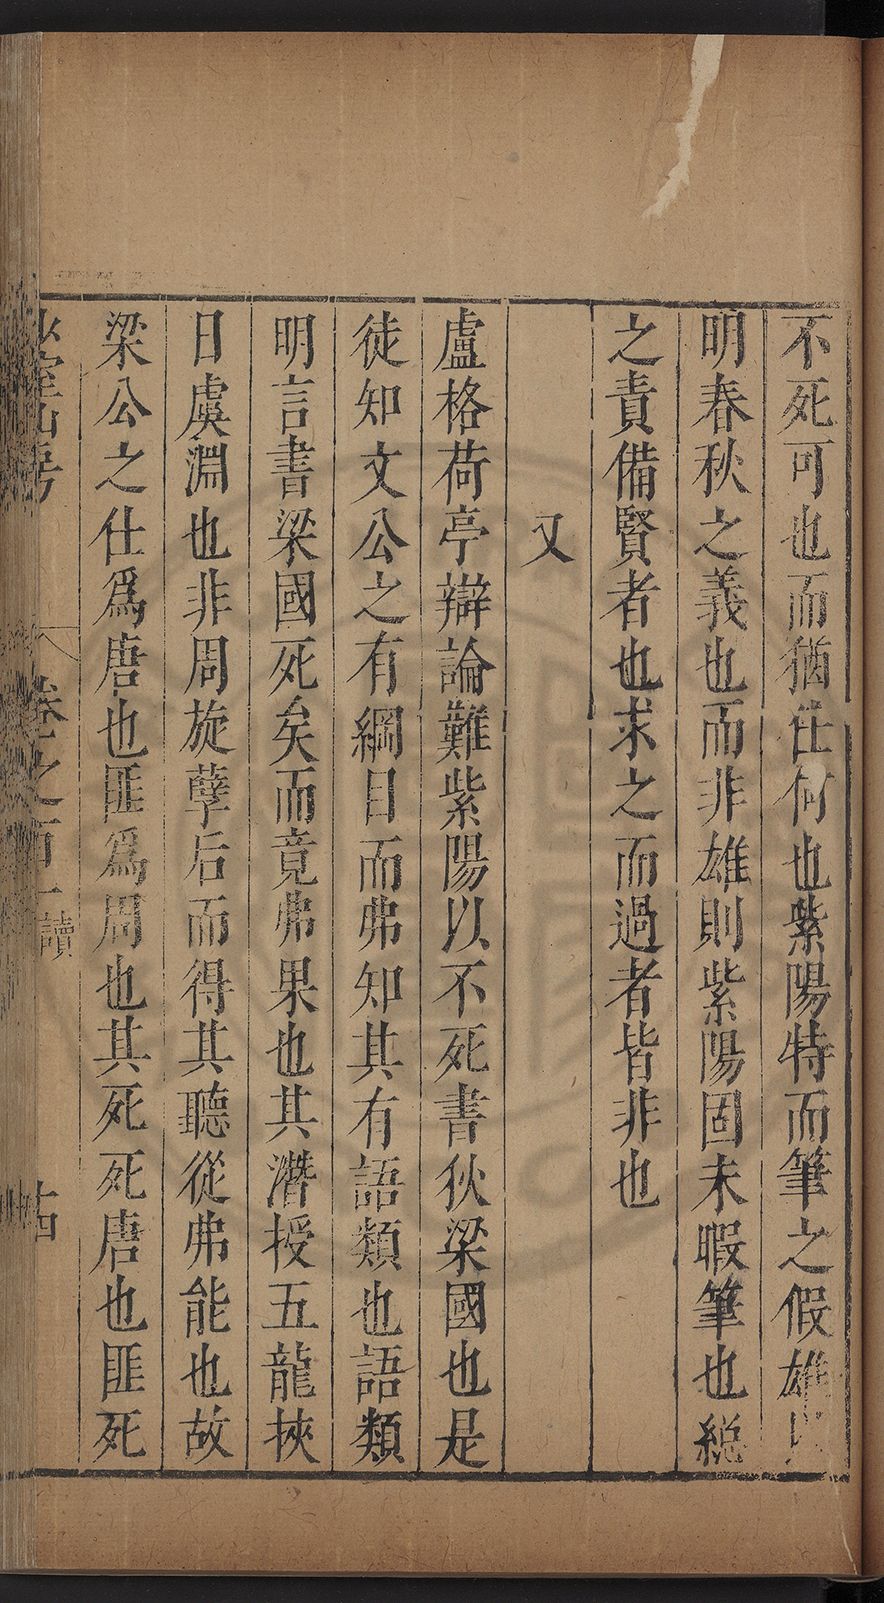 不死可也而猶仕何也紫陽特而筆之假雄以
明春秋之義也而非雄則紫陽固未暇筆也総
之責備賢者也求之而過者皆非也
又
盧格荷亭辯論難紫陽以不死書狄梁國也是
徒知文公之有綱目而弗知其有語類也語類
明言書梁國死矣而竟弗果也其潛授五龍挾
日虞淵也非周旋孽后而得其聽從弗能也故
梁公之仕爲唐也匪爲周也其死死唐也匪死
卷之百一
讀